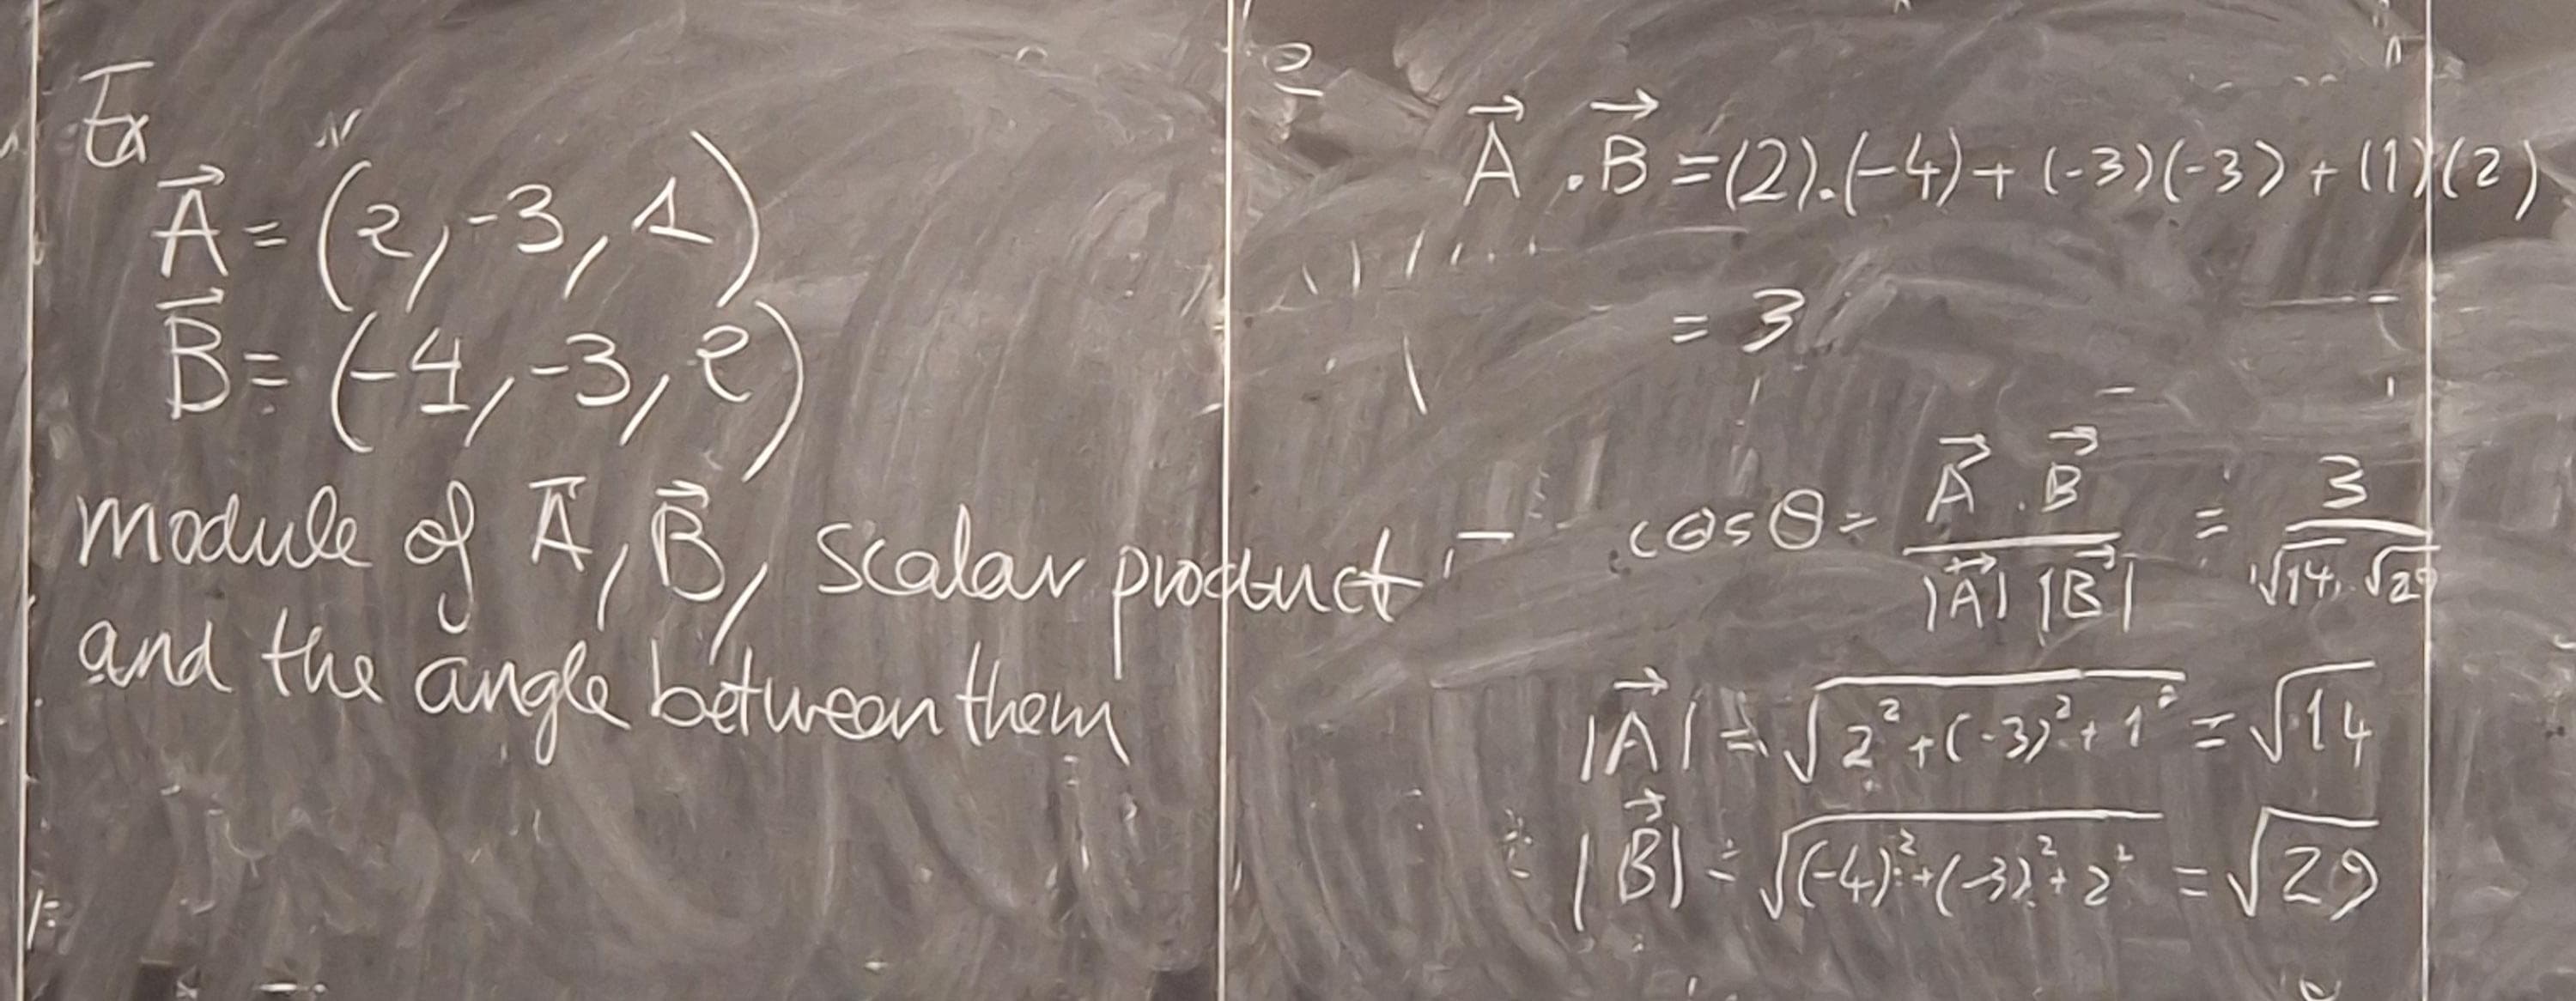 Ex
A⃗ = (2, -3, 1)
B⃗ = (-4, -3, 2)
module of A⃗, B⃗, scalar product
and the angle between them
A⃗ . B⃗ = (2).(-4) + (-3)(-3) + (1)(2)
= 3
cos θ = A⃗ . B⃗ / |A⃗| |B⃗| = 3 / √14 . √29
|A⃗| = √(2² + (-3)² + 1²) = √14
|B⃗| = √((-4)² + (-3)² + 2²) = √29